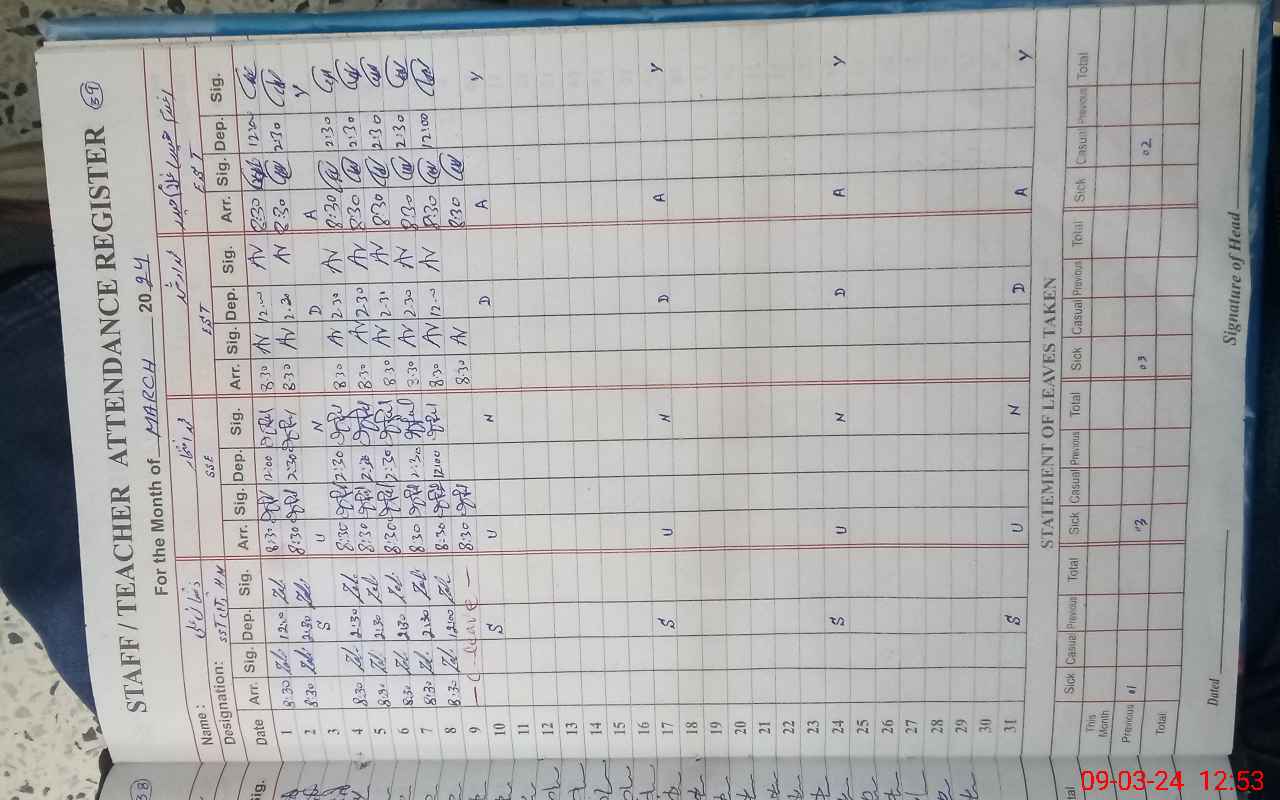 39
STAFF / TEACHER ATTENDANCE REGISTER
For the Month of MARCH 2024
Name :
Designation: SST (IT), HM SSE EST EST
Date Arr. Sig. Dep. Sig. Arr. Sig. Dep. Sig. Arr. Sig. Dep. Sig. Arr. Sig. Dep. Sig.
1 8:30 12:00 8:30 12:00 8:30 AN 12:00 AN 8:30 12:00
2 8:30 2:30 8:30 2:30 8:30 AN 2:30 AN 8:30 2:30
3 S U N D A Y
4 8:30 2:30 8:30 2:30 8:30 AN 2:30 AN 8:30 2:30
5 8:30 2:30 8:30 2:30 8:30 AN 2:30 AN 8:30 2:30
6 8:30 2:30 8:30 2:30 8:30 AN 2:30 AN 8:30 2:30
7 8:30 2:30 8:30 2:30 8:30 AN 2:30 AN 8:30 2:30
8 8:30 12:00 8:30 12:00 8:30 AN 12:00 AN 8:30 12:00
9 — ( leave ) — 8:30 8:30 AN 8:30
10 S U N D A Y
11
12
13
14
15
16
17 S U N D A Y
18
19
20
21
22
23
24 S U N D A Y
25
26
27
28
29
30
31 S U N D A Y
STATEMENT OF LEAVES TAKEN
Sick Casual Previous Total Sick Casual Previous Total Sick Casual Previous Total Sick Casual Previous Total
This Month
Previous 01 03 03 02
Total
Dated Signature of Head
38
Sig.
tal
09-03-24 12:53